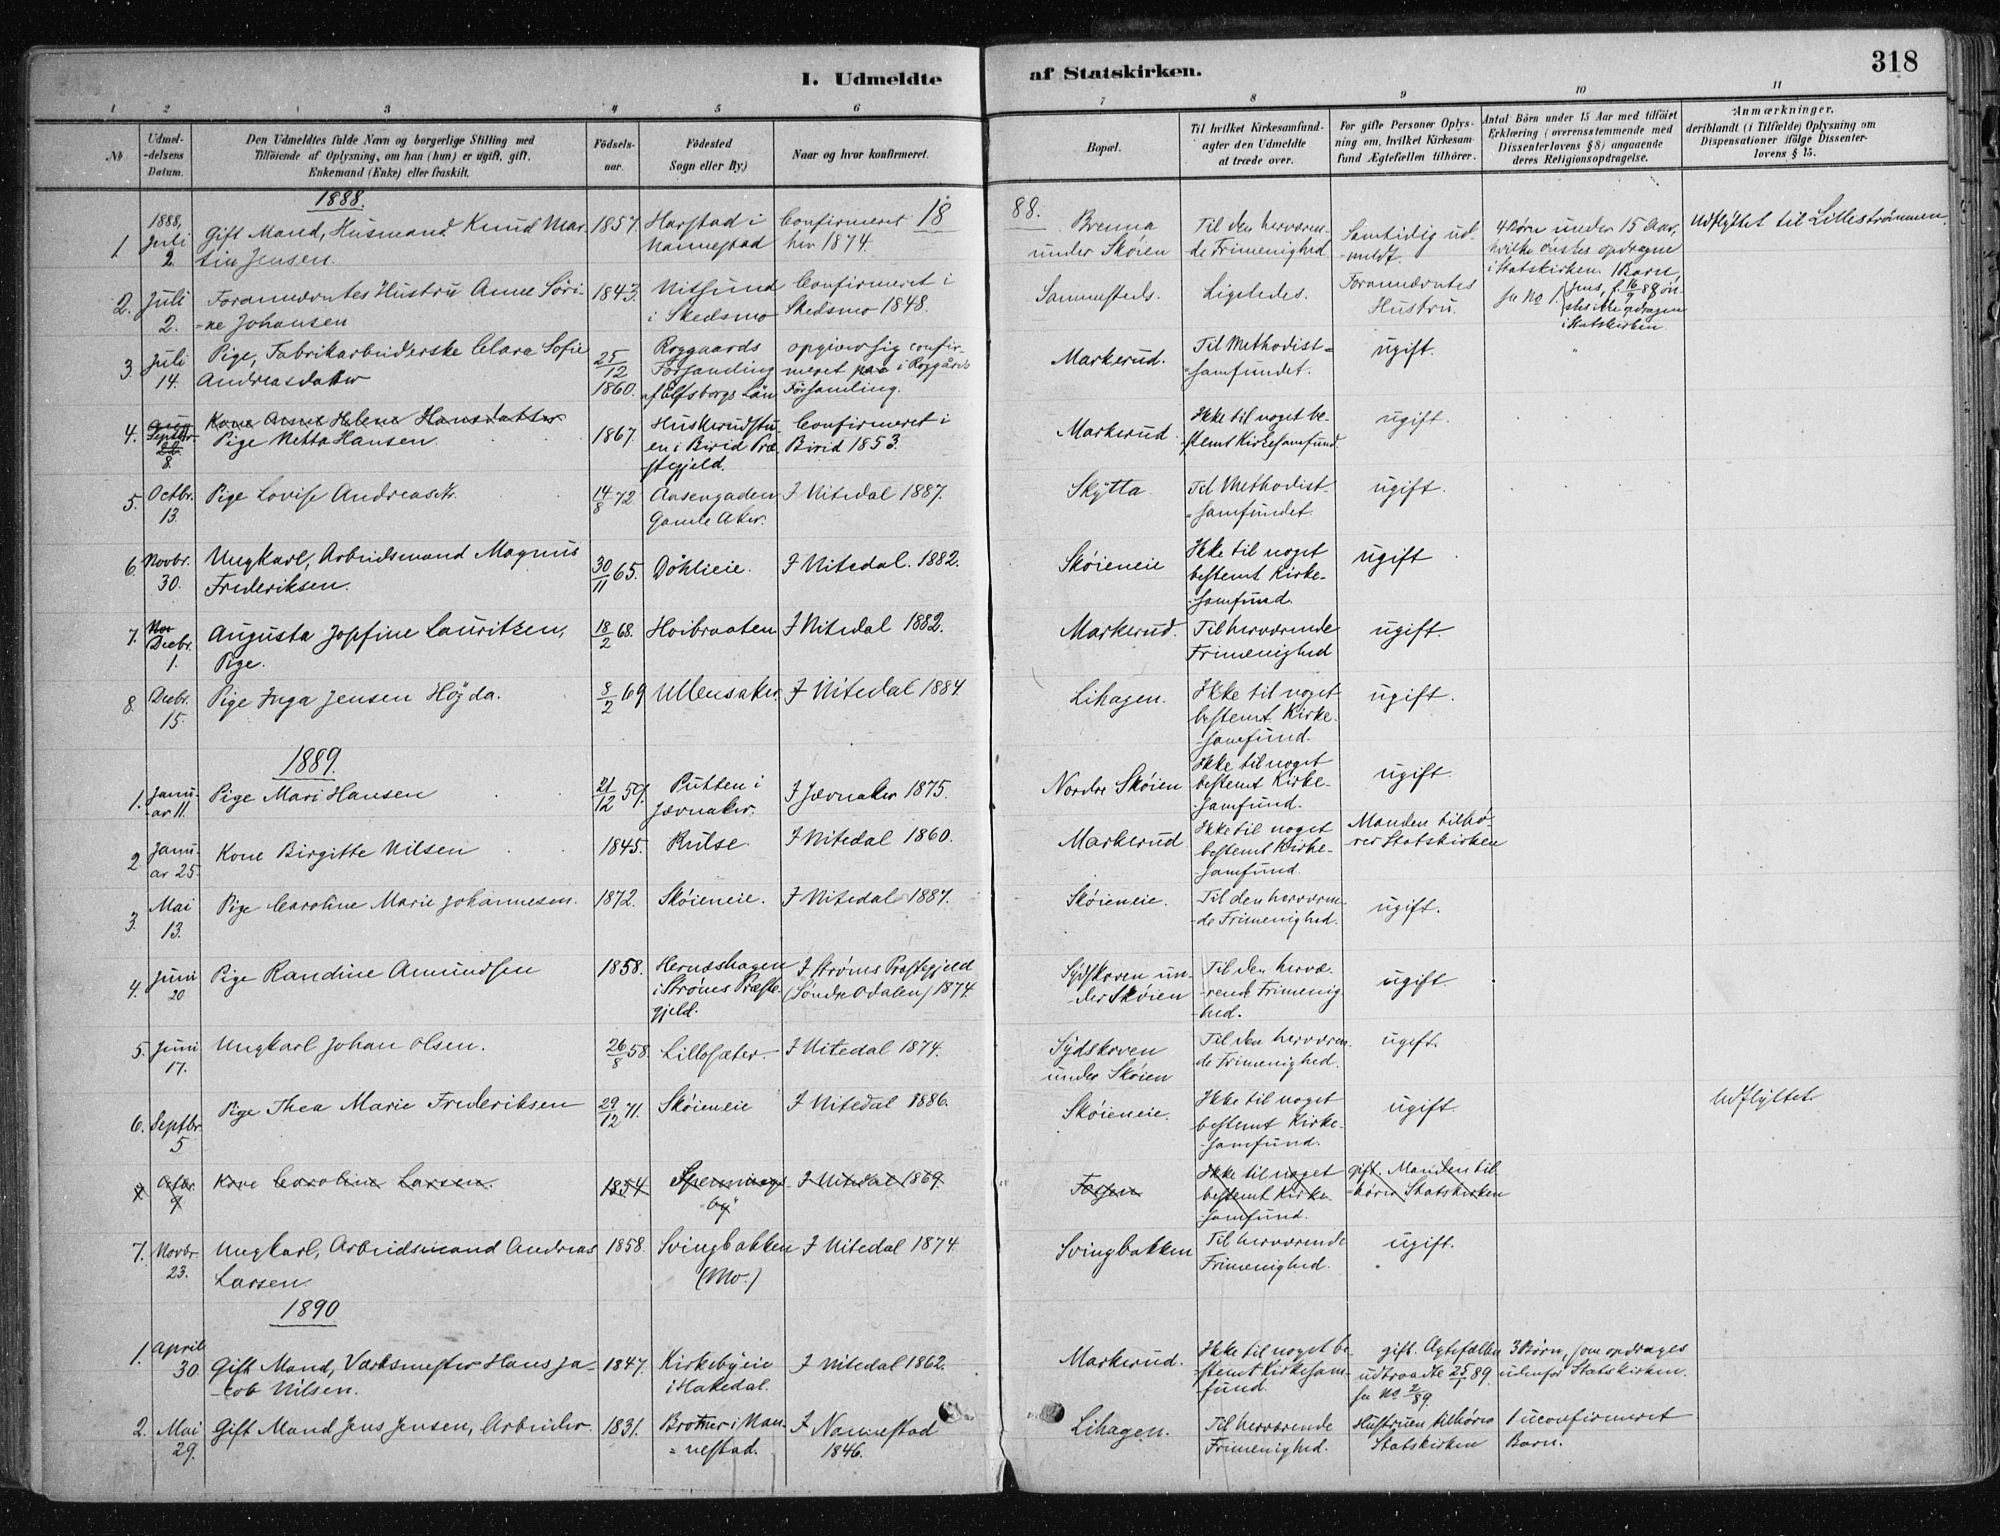 I. Udmeldte af Statskirken. 318
1 2 3 4 5 6 7 8 9 10 11
No
Udmel-
-delsens
Datum.
Den Udmeldtes fulde Navn og borgerlige Stilling med
Tilföiende af Oplysning, om han (hun) er ugift, gift,
Enkemand (Enke) eller fraskilt.
Födsels-
aar.
Födested
Sogn eller By.)
Naar og hvor konfirmeret.
Bopæl.
Til hvilket Kirkesamfund-
agter den Udmeldte
at træde over.
For gifte Personer Oplys-
ning om, hvilket Kirkesam-
fund Ægtefællen tilhörer.
Antal Börn under 15 Aar med tilföiet
Erklæring (overensstemmende med
Dissenterlovens § 8) angaaende
deres Religionsopdragelse.
Anmærkninger,
deriblandt (i Tilfælde) Oplysning om
Dispensationer ifölge Dissenter-
lovens § 15.
1888.
18 88.
1. 1888, Juli 2. Gift Mand, Husmand Knud Mar-
tin Jensen. 1857. Harstad i
Nannestad Confirmeret
her 1874. Brenna
under Skøien Til den herværen-
de Frimenighed Samtidig ud-
meldt. 4 Børn under 15 Aar,
hvilke ønskes opdragne
i Statskirken. Udflyttet til Lillestrømmen.
2. Juli 2. Forannævntes Hustru Anne Søri-
-ne Johansen 1843. Nitsund
i Skedsmo Confirmeret i
Skedsmo 1848. Sammesteds. Ligeledes. Forannævntes
Hustru. se No 1. 1 Barn,
Jens, f. 16/9 88 øn-
skes ikke opdragen
i Statskirken.
3. Juli 14. Pige, Fabrikarbeiderske Clara Sofie
Andreasdatter 25/12 1860. Roggaards
Forsamling
af Elfsborgs Län opgiver sig confir-
meret i Roggårds
Församling. Markerud. Til Methodist-
-samfundet. ugift.
4. Septbr 8. Kone Anne Helene Hansdatter
Pige Netta Hansen 1867. Huskerudstu-
en i Birid Præ-
stegjeld. Confirmeret i
Birid 1853. Markerud. Ikke til noget be-
stemt Kirkesamfund ugift.
5. Octbr. 13. Pige Lovise Andreasdtr. 14/8 72. Aasengaden
Gamle Aker. I Nitedal 1887. Skytta. Til Methodist-
-samfundet. ugift.
6. Novbr. 30. Ungkarl, Arbeidsmand Magnus
Frederiksen. 30/11 65. Döhlieie. I Nitedal. 1882. Skøieneie Ikke til noget
bestemt Kirke-
-samfund. ugift
7. Nov Decbr. 1. Augusta Josefine Lauritzen,
Pige. 18/2 68. Hoibraaten I Nitedal 1882. Markerud. Til herværende
Frimenighed ugift.
8. Decbr. 15. Pige Inga Jensen Höjda. 8/2 69 Ullensaker. I Nitedal 1884 Lihagen. Ikke til noget
bestemt Kirke-
-samfund. ugift.
1889.
1. Janu-
ar 11. Pige Mari Hansen 21/12 59. Putten i
Jævnaker. I Jævnaker 1875. Nordre Skøien Ikke til noget
bestemt Kirke-
-samfund. ugift.
2 Janu-
ar 25. Kone Birgitte Nilsen 1845. Rulse. I Nitedal 1860. Markerud Ikke til noget
bestemt Kirke-
-samfund. Manden tilhø-
rer Statskirken
3. Mai 13. Pige Caroline Marie Johannesen. 1872. Skøieneie. I Nitedal 1887. Skøieneie. Til den herværen-
-de Frimenighed. ugift.
4. Juni 20 Pige Randine Amundsen 1858. Herneshagen
i Strøms Præste-
gjeld. I Strøms Præstegjeld
(Søndre Odalen) 1874. Sydskoven un-
-der Skøien Til den hervæ-
-rende Frimenig-
-hed. ugift.
5. Juni 17. Ungkarl Johan Olsen. 26/8 58. Lillesæter. I Nitedal 1874. Sydskoven
under Skøien Til den herværen-
-de Frimenighed. ugift.
6. Septbr. 5 Pige Thea Marie Frederiksen 29/12 71. Skøieneie I Nitedal 1886. Skøieneie. Ikke til noget
bestemt Kirke-
-samfund. ugift. Udflyttet.
7 Octbr. 7 Kone Caroline Larsen. 1854 by I Nitedal 1869. Ikke til noget
bestemt Kirke-
-samfund. gift. Manden til-
-hører Statskirken
7. Novbr. 23. Ungkarl, Arbeidsmand Andreas
Larsen. 1858. Svingbakken
(Mo.) I Nitedal 1874. Svingbakken Til herværende
Frimenighed. ugift.
1890
1. April 30. Gift Mand, Værksmester Hans Ja-
-cob Nilsen. 1847. Kirkebyeie
i Hakedal. I Nitedal 1862. Markerud. Ikke til noget be-
-stemt Kirkesam-
fund. gift. Ægtefællen
udtraadte 25/1 89.
se No 2/89. 3 Børn, som opdrages
udenfor Statskirken.
2. Mai 29. Gift Mand Jens Jensen, Arbeider. 1831. i Nan-
=nestad. I Nannestad
1846. Lihagen. Til herværende
Frimenighed. Hustruen tilhører
Statskirken 1 uconfirmeret
Barn.